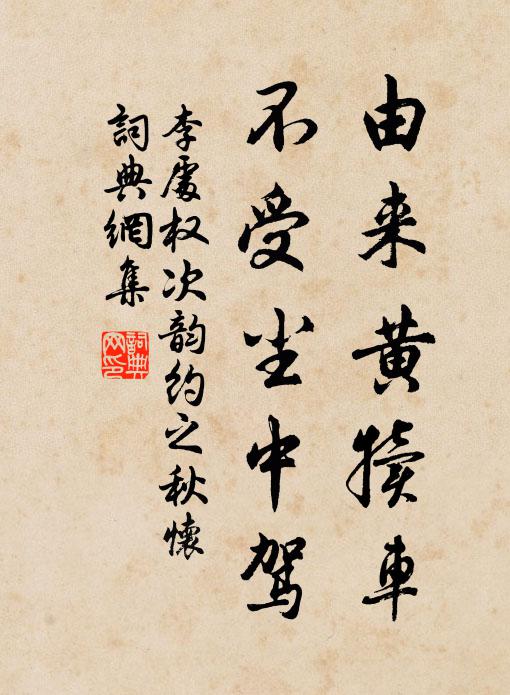 由来黄犊車
不受尘中驾
李處权次韵约之秋懷
詞典網集
詞典
网印